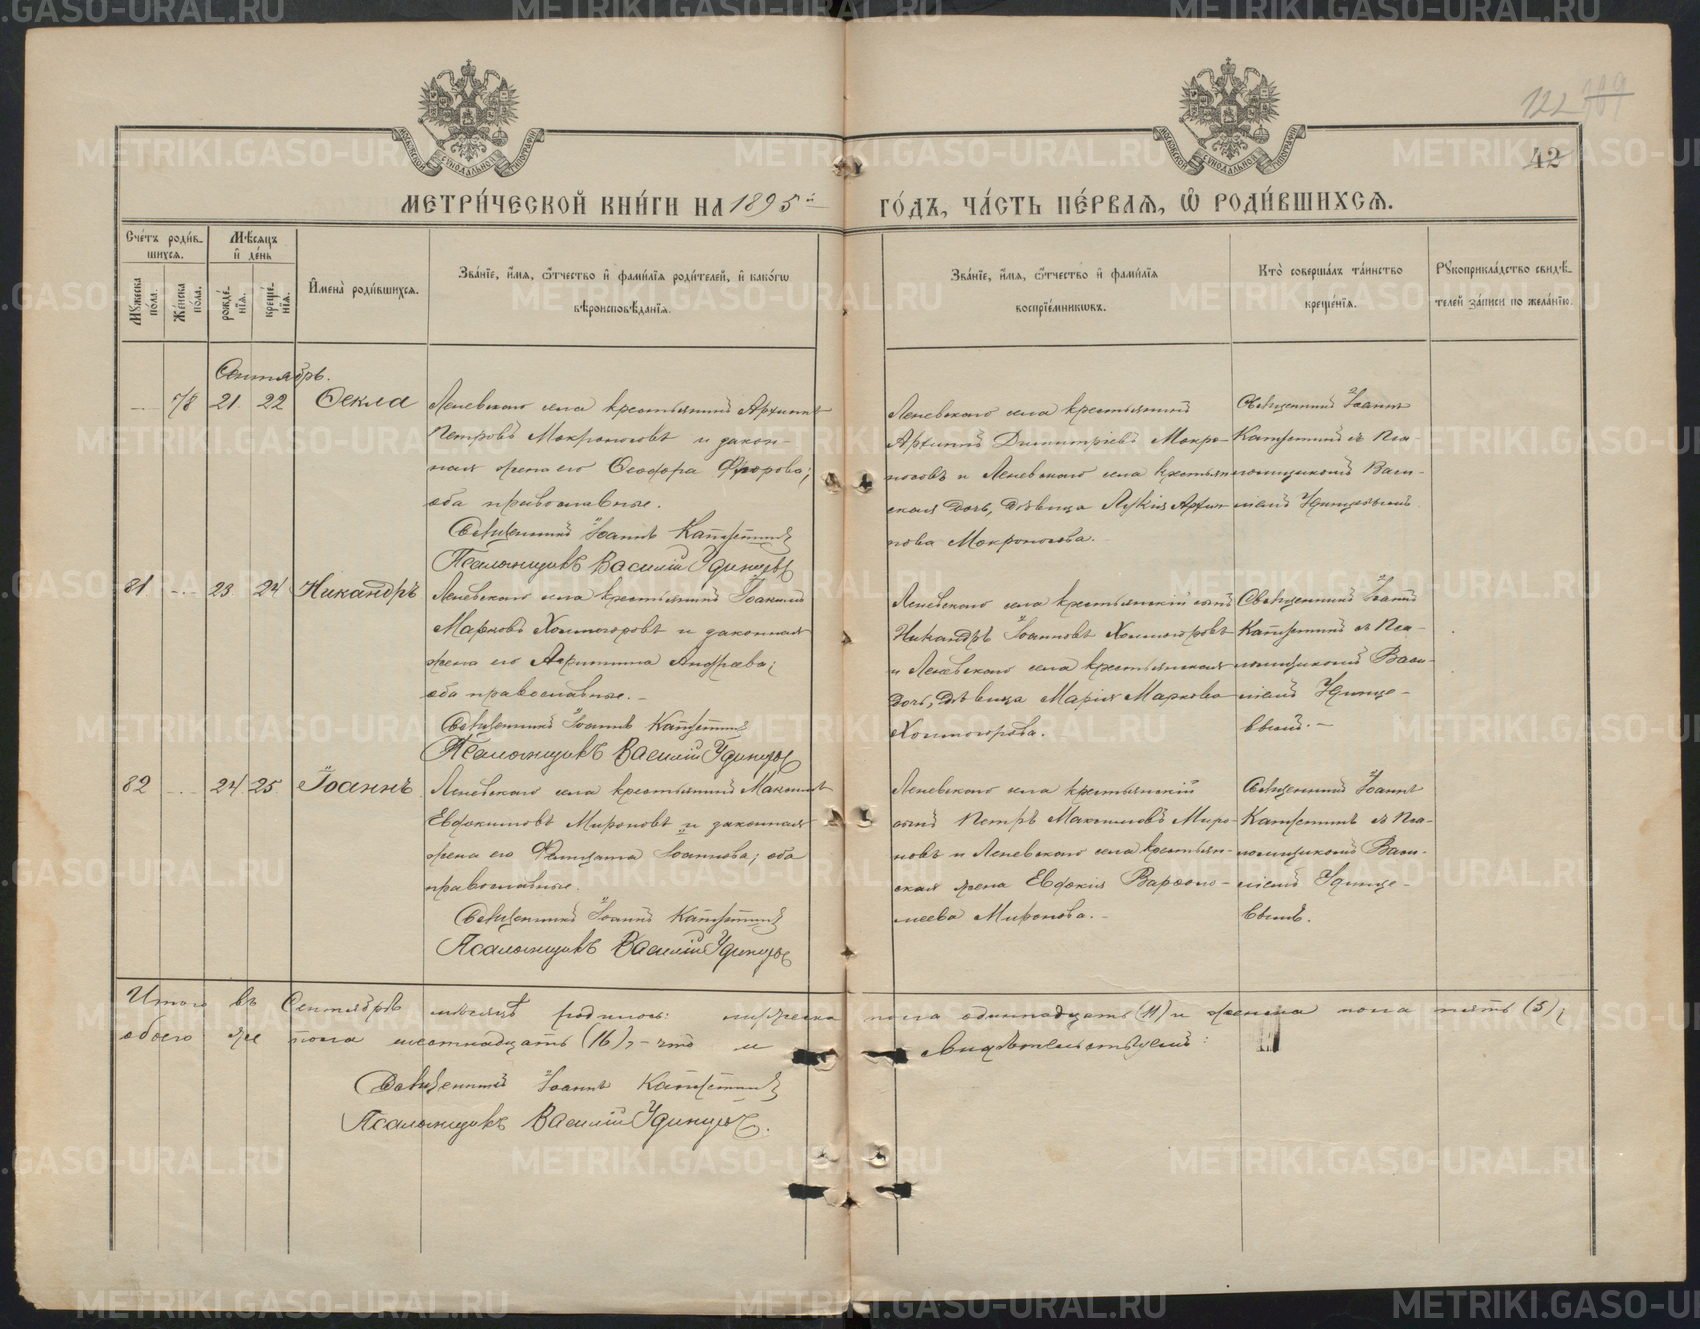 122 789
42
МЕТРИ́ЧЕСКОЙ КНИ́ГИ НА 1895й ГО́ДЪ, ЧА́СТЬ ПЕ́РВАѦ, Ѡ҆ РОДИ́ВШИХСѦ.
Счётъ роди́в-
шихсѧ.
Мꙋ́жеска по́ла.
Же́нска по́ла.
Мѣ́сѧцъ
и҆ де́нь
рожде́нїѧ.
креще́нїѧ.
И҆мена̀ роди́вшихсѧ.
Зва́нїе, и҆́мѧ, ѻ҆́тчество и҆ фами́лїѧ роди́телей, и҆ како́гѡ
вѣроисповѣ́данїѧ.
Зва́нїе, и҆́мѧ, ѻ҆́тчество и҆ фами́лїѧ
воспрїе́мникѡвъ.
Кто̀ соверша́лъ та́инство
креще́нїѧ.
Рꙋкоприкла́дство свидѣ́-
телей за́писи по жела́нїю.
Сентябрь.
— 78 21 22 Ѳекла
Леневскаго села крестьянинъ Архиппъ
Петровъ Мокроносовъ и закон-
ная жена его Ѳеодора Флорова;
оба православные.
Священникъ Іоаннъ
Псаломщикъ Василій Удинцевъ
Леневскаго села крестьянинъ
Архиппъ Димитріевъ Мокро-
носовъ и Леневскаго села крестьян-
ская дочь, дѣвица Лукія Архип-
пова Мокроносова.
Священникъ Іоаннъ
съ Пса-
ломщикомъ Васи-
ліемъ Удинцевымъ
81 — 23 24 Никандръ
Леневскаго села крестьянинъ Іоакимъ
Марковъ Холмогоровъ и законная
жена его Акриппина Андреева;
оба православные. –
Священникъ Іоаннъ
Псаломщикъ Василій Удинцевъ
Леневскаго села крестьянскій сынъ
Никандръ Іоанновъ Холмогоровъ
и Леневскаго села крестьянская
дочь, дѣвица Марія Маркова
Холмогорова.
Священникъ Іоаннъ
съ Пса-
ломщикомъ Васи-
ліемъ Удинце-
вымъ. –
82 — 24 25 Іоаннъ
Леневскаго села крестьянинъ Максимъ
Евдокимовъ Мироновъ и законная
жена его Фелицата Іоаннова; оба
православные.
Священникъ Іоаннъ
Псаломщикъ Василій Удинцевъ
Леневскаго села крестьянскій
сынъ Петръ Максимовъ Миро-
новъ и Леневскаго села крестьян-
ская жена Евдокія Варѳоло-
меева Миронова. –
Священникъ Іоаннъ
съ Пса-
ломщикомъ Васи-
ліемъ Удинце-
вымъ.
Итого въ Сентябрѣ мѣсяцѣ родилось: мужеска пола одиннадцать (11) и женска пола пять (5),
обоего же пола шестнадцать (16), – что и свидѣтельствуемъ:
Священникъ Іоаннъ
Псаломщикъ Василій Удинцевъ.
METRIKI.GASO-URAL.RU